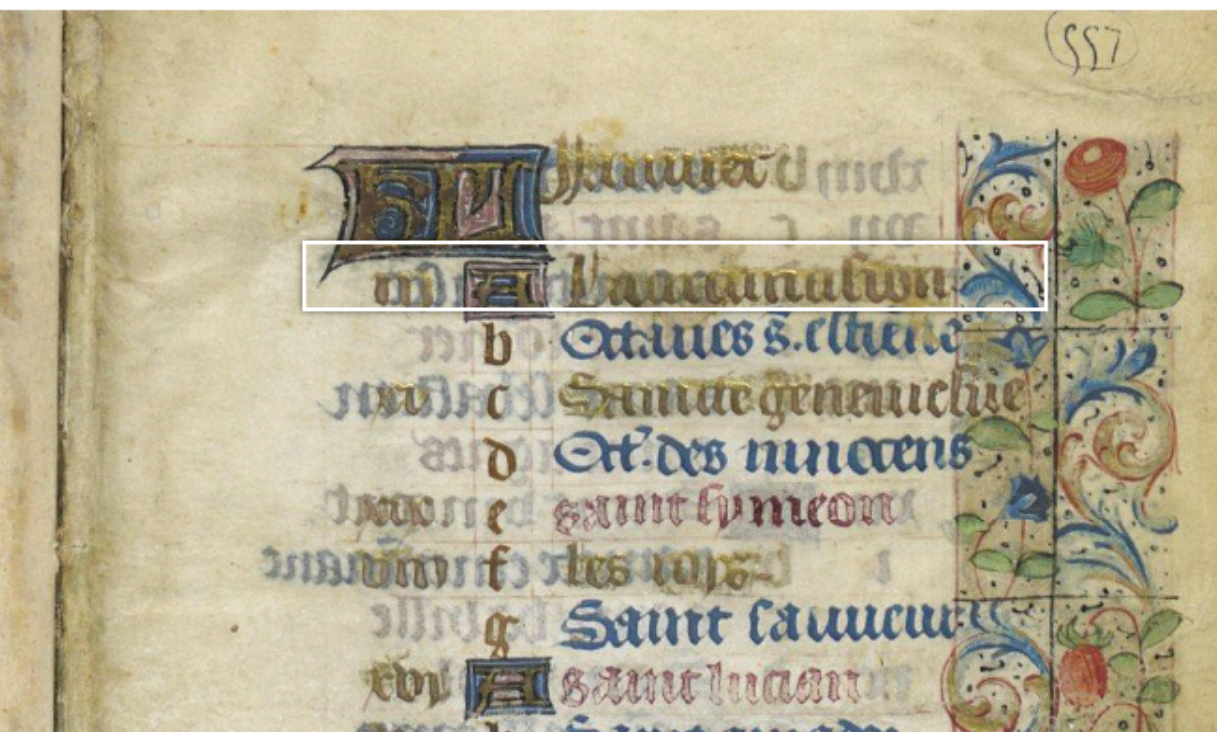 557
KL Januier
iii A La circuncision
b Octaues s. estiene
xi c Saincte geneuiefue
d Oct. des innocens
xix e saint symeon
viii f les rois
g Saint sauueur
xvi A saint lucian